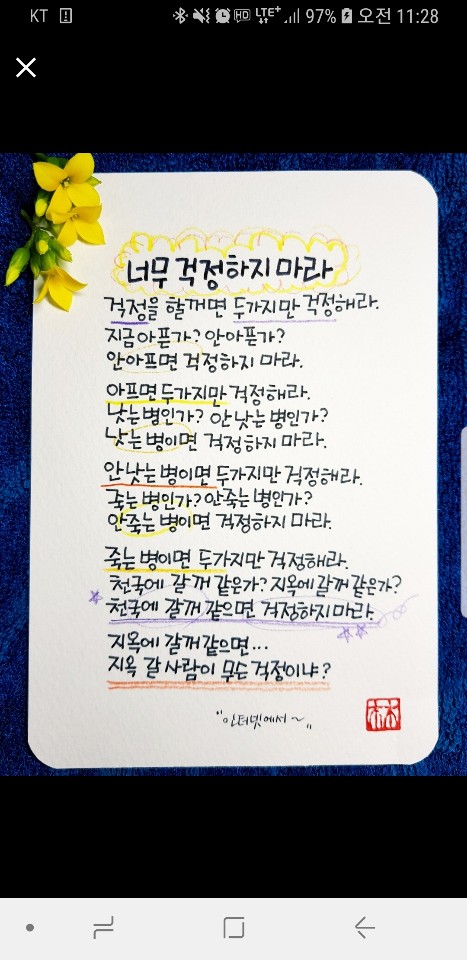 KT HD LTE+ 97% 오전 11:28
너무 걱정하지 마라
걱정을 할꺼면 두가지만 걱정해라.
지금 아픈가? 안아픈가?
안아프면 걱정하지 마라.
아프면 두가지만 걱정해라.
낫는 병인가? 안 낫는 병인가?
낫는 병이면 걱정하지 마라.
안 낫는 병이면 두가지만 걱정해라.
죽는 병인가? 안죽는 병인가?
안죽는 병이면 걱정하지 마라.
죽는 병이면 두가지만 걱정해라.
천국에 갈꺼 같은가? 지옥에 갈꺼 같은가?
천국에 갈꺼 같으면 걱정하지 마라.
지옥에 갈꺼 같으면...
지옥 갈 사람이 무슨 걱정이냐?
"인터넷에서~"